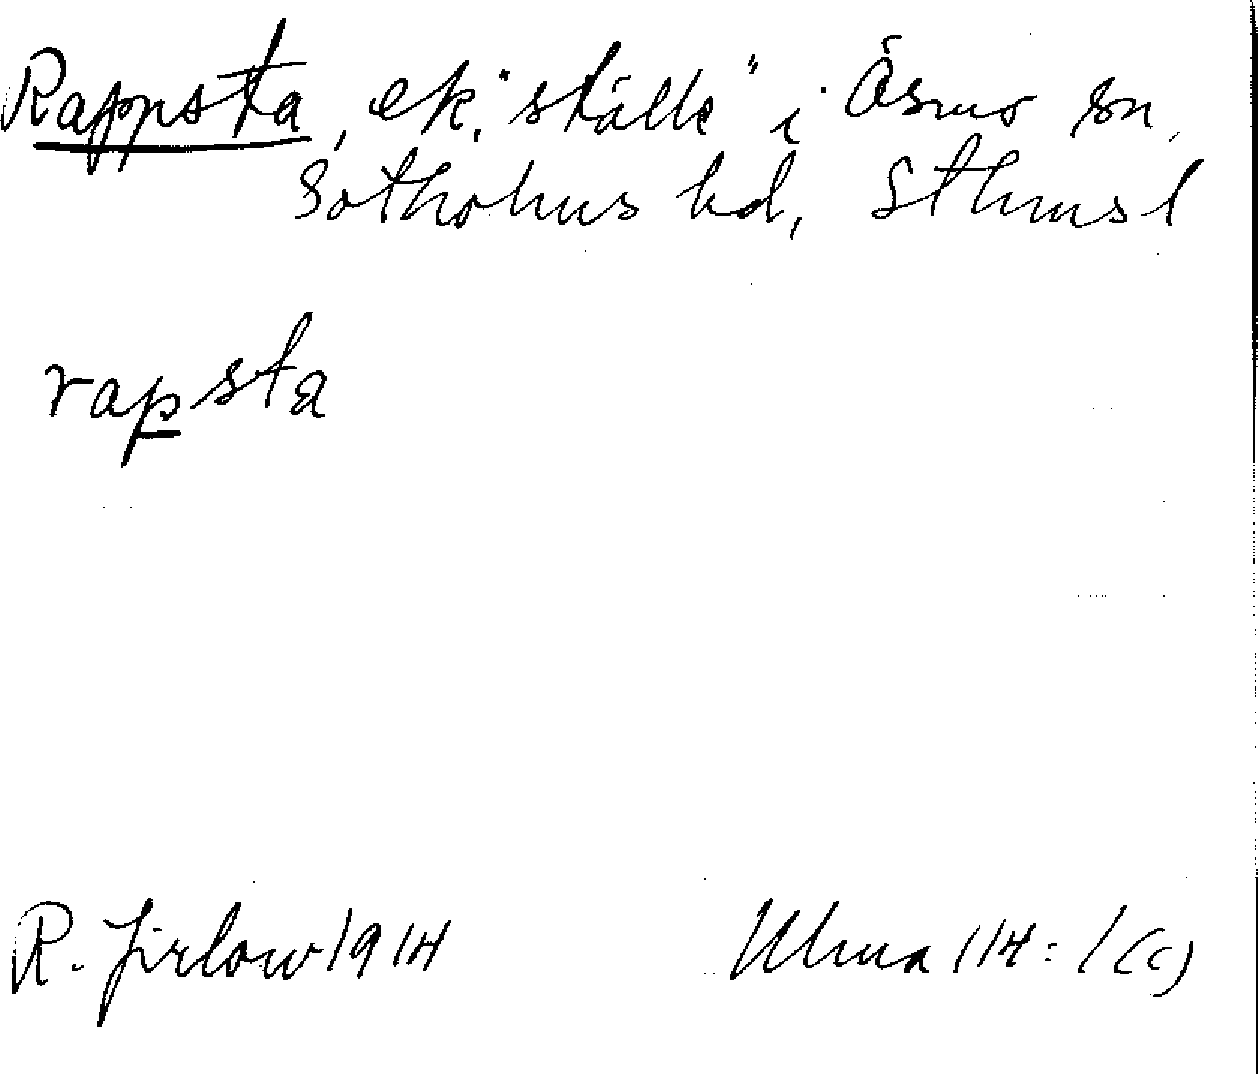 Rappsta, ek. "ställe" i Ösmo sn,
Sotholms hd, Sthms l
rapsta
R. Jirlow 1914
Ulma 114:1 (c)